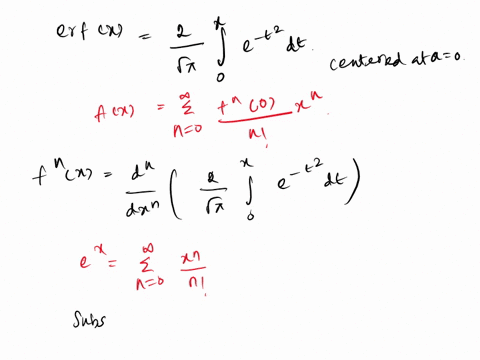 erf(x) = 2/√π ∫₀ˣ e^{-t²} dt.
centered at a=0.
f(x) = Σ_{n=0}^{∞} fⁿ(0)/n! xⁿ
fⁿ(x) = dⁿ/dxⁿ ( 2/√π ∫₀ˣ e^{-t²} dt )
eˣ = Σ_{n=0}^{∞} xn/n!
Subs